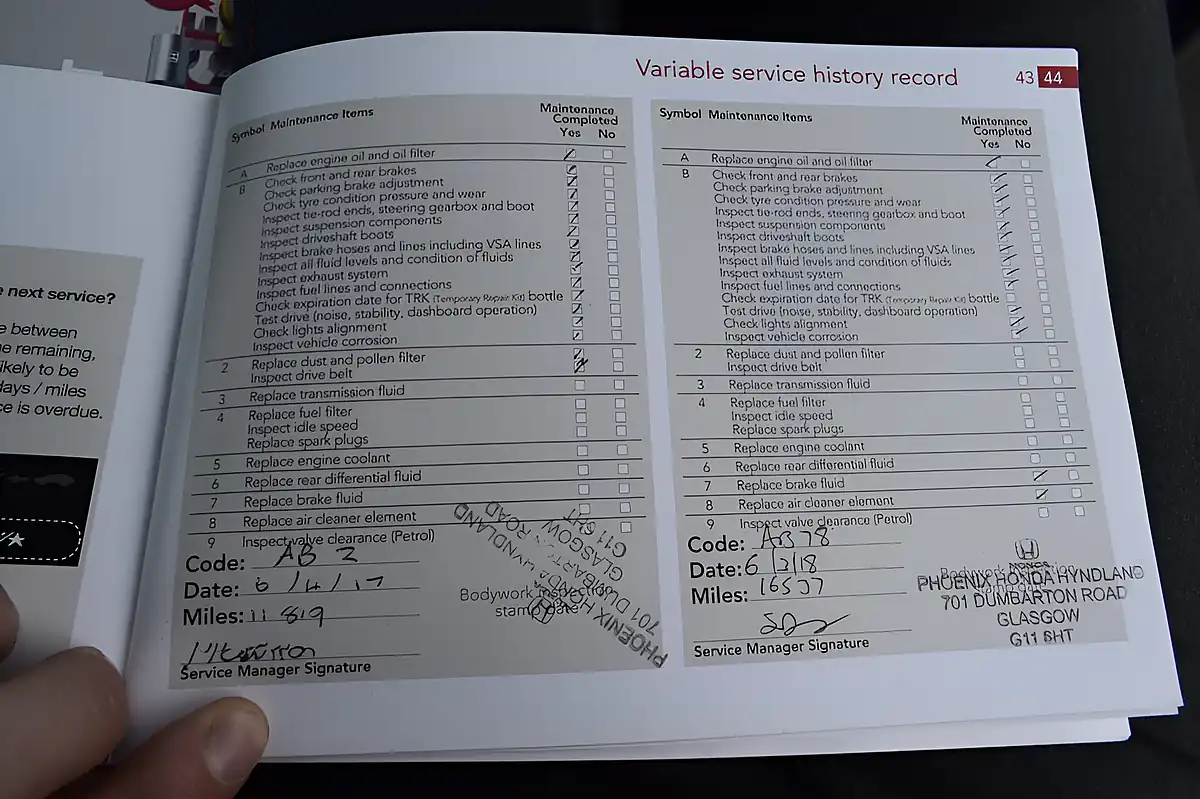 e next service?
e between
he remaining,
ikely to be
days / miles
ce is overdue.
Variable service history record
43 44
Symbol Maintenance Items
Maintenance
Completed
Yes No
A Replace engine oil and oil filter
B Check front and rear brakes
Check parking brake adjustment
Check tyre condition pressure and wear
Inspect tie-rod ends, steering gearbox and boot
Inspect suspension components
Inspect driveshaft boots
Inspect brake hoses and lines including VSA lines
Inspect all fluid levels and condition of fluids
Inspect exhaust system
Inspect fuel lines and connections
Check expiration date for TRK (Temporary Repair Kit) bottle
Test drive (noise, stability, dashboard operation)
Check lights alignment
Inspect vehicle corrosion
2 Replace dust and pollen filter
Inspect drive belt
3 Replace transmission fluid
4 Replace fuel filter
Inspect idle speed
Replace spark plugs
5 Replace engine coolant
6 Replace rear differential fluid
7 Replace brake fluid
8 Replace air cleaner element
9 Inspect valve clearance (Petrol)
Code: AB 2
Date: 6/4/17
Miles: 11 819
Service Manager Signature
Bodywork inspection
stamp/date
PHOENIX HONDA HYNDLAND
701 DUMBARTON ROAD
GLASGOW
G11 6HT
Symbol Maintenance Items
Maintenance
Completed
Yes No
A Replace engine oil and oil filter
B Check front and rear brakes
Check parking brake adjustment
Check tyre condition pressure and wear
Inspect tie-rod ends, steering gearbox and boot
Inspect suspension components
Inspect driveshaft boots
Inspect brake hoses and lines including VSA lines
Inspect all fluid levels and condition of fluids
Inspect exhaust system
Inspect fuel lines and connections
Check expiration date for TRK (Temporary Repair Kit) bottle
Test drive (noise, stability, dashboard operation)
Check lights alignment
Inspect vehicle corrosion
2 Replace dust and pollen filter
Inspect drive belt
3 Replace transmission fluid
4 Replace fuel filter
Inspect idle speed
Replace spark plugs
5 Replace engine coolant
6 Replace rear differential fluid
7 Replace brake fluid
8 Replace air cleaner element
9 Inspect valve clearance (Petrol)
Code: AB78
Date: 6/3/18
Miles: 16537
Service Manager Signature
HONDA
Bodywork inspection
PHOENIX HONDA HYNDLAND
701 DUMBARTON ROAD
GLASGOW
G11 6HT